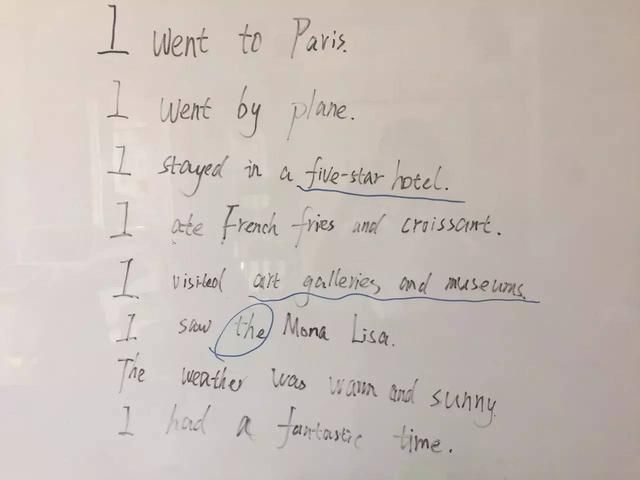 I went to Paris.
I went by plane.
I stayed in a five-star hotel.
I ate French fries and croissant.
I visited art galleries and museums.
I saw the Mona Lisa.
The weather was warm and sunny
I had a fantastic time.